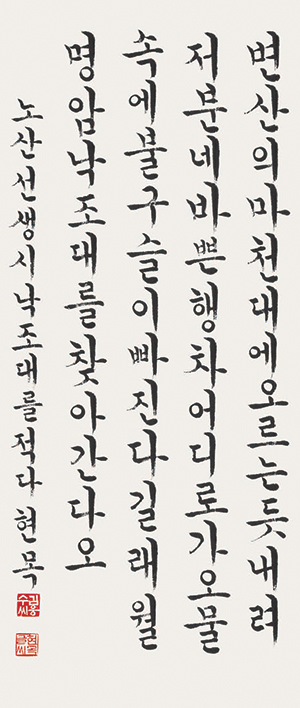 변산의마천대에오르는듯내려
저분네바쁜행차어디로가오물
속에불구슬이빠진다길래월
명암낙조대를찾아간다오
노산선생시낙조대를적다 현목